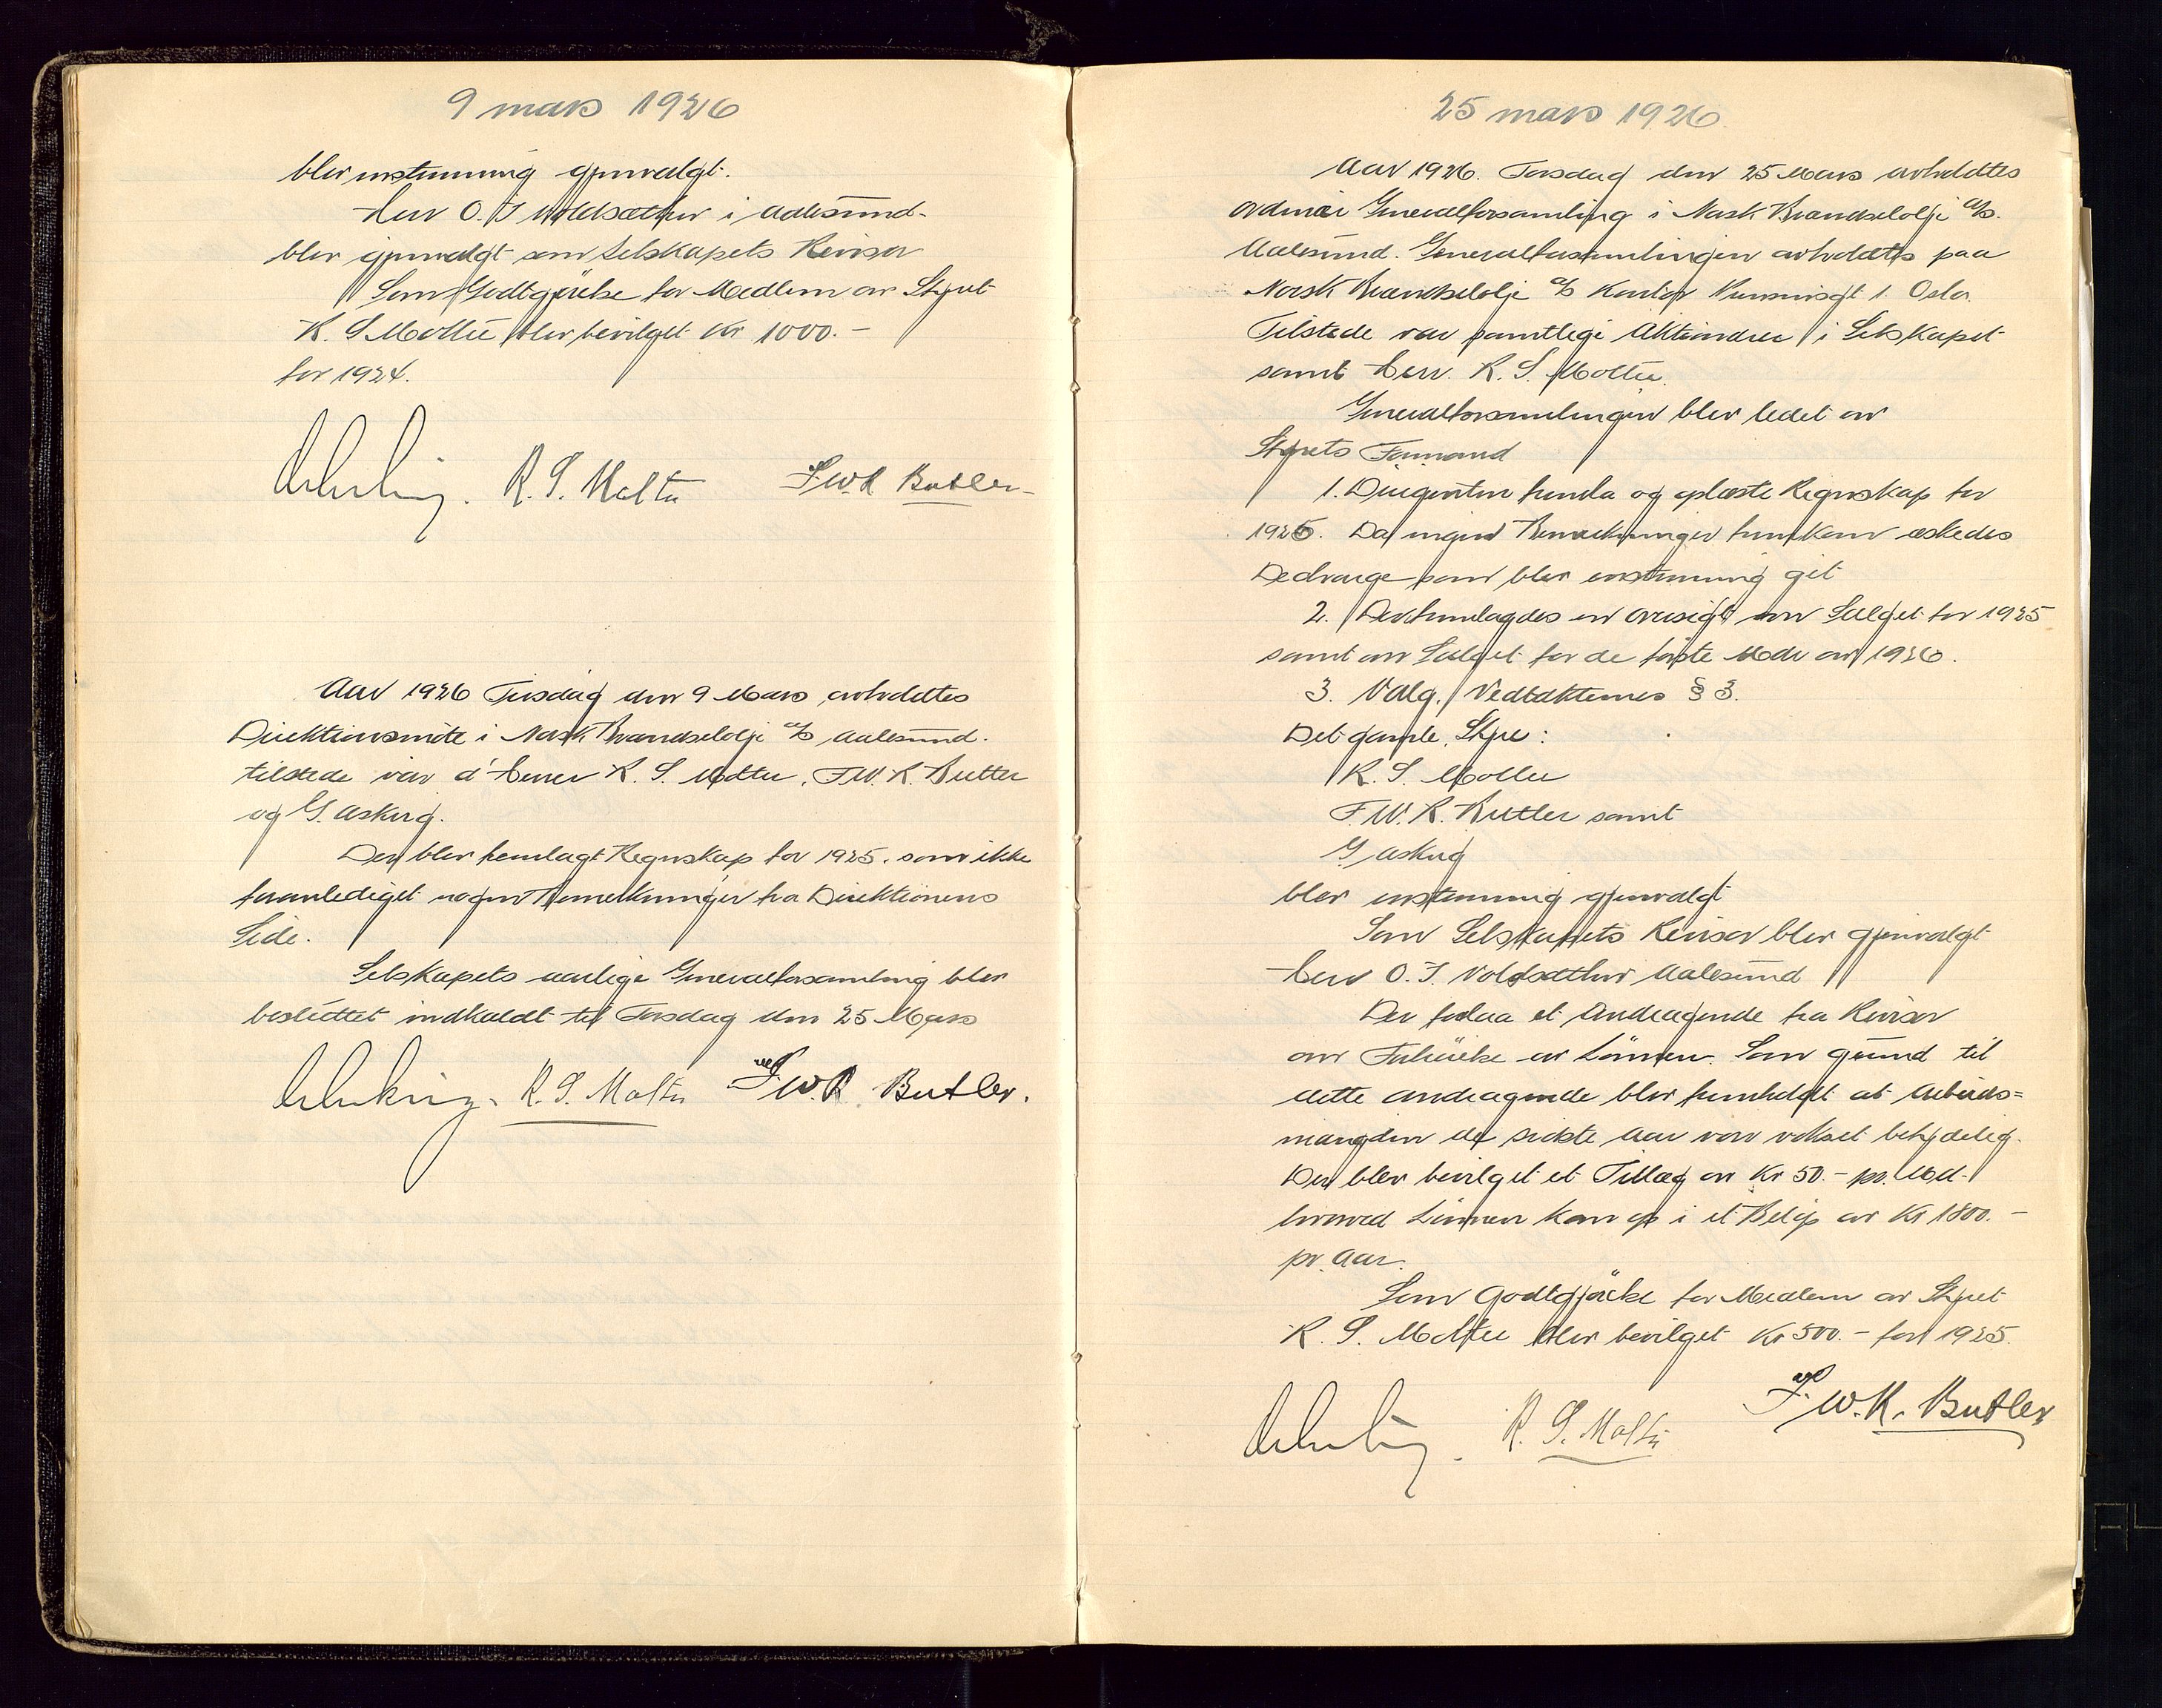 9 mars 1926
blev enstemmig gjenvalgt.
Herr O. J. Voldsæther i Aalesund
blev gjenvalgt som Selskapets Revisor
Som Godtgjörelse for Medlem av Styret
K. S. Moltu blev bevilget Kr 1000.-
for 1924.
R. S. Moltu F.W.R Butler
Aar 1926 Tirsdag den 9 Mars avholdtes
Direktionsmöte i Norsk Brændselolje A/S Aalesund.
tilstede var d'herrer R. S. Moltu, F.W.R. Butler
og G. Askvig.
Der blev fremlagt Regnskap for 1925. som ikke
foranlediget nogen Bemerkninger fra Direktionens
Side.
Selskapets aarlige Generalforsamling blev
besluttet indkaldt til Torsdag den 25 Mars
R. S. Moltu F.W.R. Butler.
25 mars 1926
Aar 1926. Torsdag den 25 Mars avholdtes
ordinær Generalforsamling i Norsk Brændselolje A/S.
Aalesund. Generalforsamlingen avholdtes paa
Norsk Brændselolje A/S Kontor 1. Oslo.
Tilstede var samtlige Aktionærer i Selskapet
samt Herr. R. S. Moltu.
Generalforsamlingen blev ledet av
Styrets Formand
1. Dirigenten fremla og oplæste Regnskap for
1925. Da ingen Bemerkninger fremkom æskedes
Decharge som blev enstemmig git
2. Der fremlagdes en oversigt over Salget for 1925
samt over Salget for de förste Mdr av 1926.
3. Valg. Vedtækternes § 3.
Det gamle Styre:
R. S. Moltu
F.W.R. Butler samt
G Askvig
blev enstemmig gjenvalgt
Som Selskapets Revisor blev gjenvalgt
Herr O. J. Voldsæther Aalesund
Der forlaa et Andragende fra Revisor
om Forhöielse av Lönnen. Som grund til
dette andragende blev fremholdt at Arbeids=
mængden de sidste Aar var vokset betydelig.
Der blev bevilget et Tillæg av Kr 50.- pr. Md.
hvorved Lönnen kom op i et Belöp av Kr 1800.-
pr. Aar.
Som Godtgjörelse for Medlem av Styret
R. S. Moltu blev bevilget Kr 500.- for 1925.
R. S. Moltu F.W.R. Butler